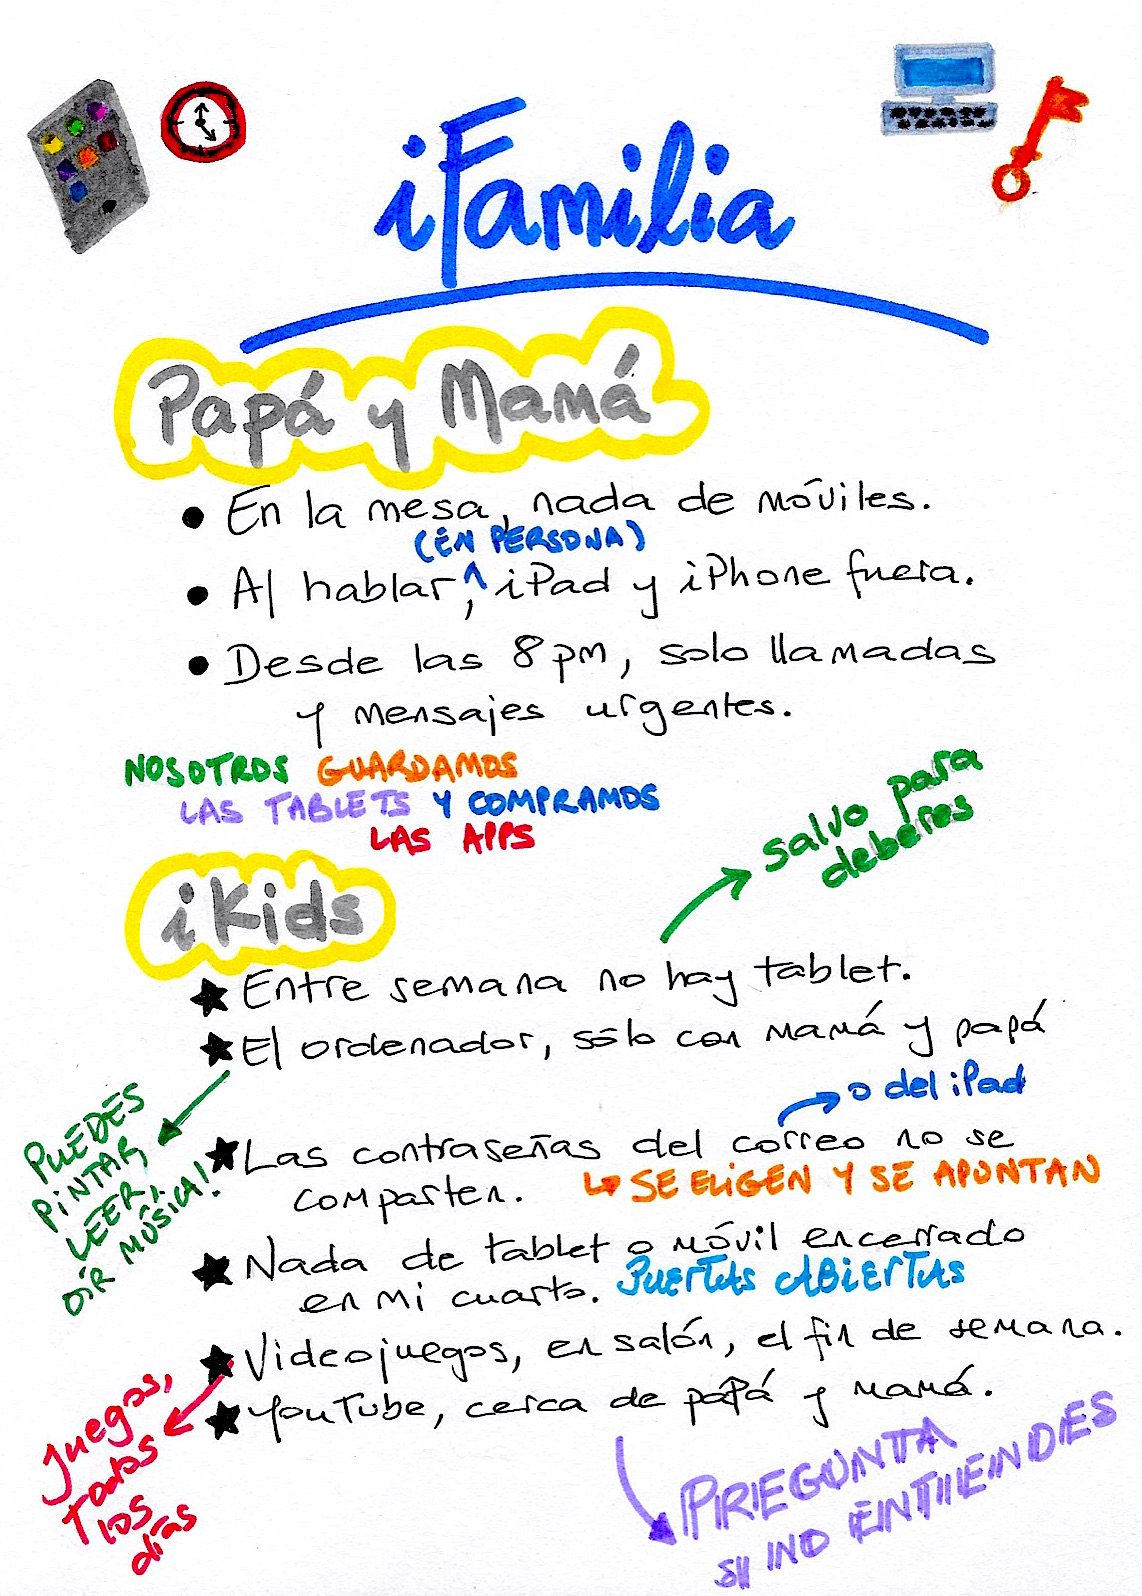 iFamilia
Papá y Mamá
• En la mesa, nada de móviles.
(EN PERSONA)
• Al hablar, ^ iPad y iPhone fuera.
• Desde las 8pm, solo llamadas
y mensajes urgentes.
NOSOTROS GUARDAMOS
LAS TABLETS Y COMPRAMOS
LAS APPS
salvo para
deberes
iKids
★ Entre semana no hay tablet.
★ El ordenador, sólo con mamá y papá
PUEDES
PINTAR,
LEER,
OÍR MÚSICA!
o del iPad
★ Las contraseñas del correo no se
comparten.
SE ELIGEN Y SE APUNTAN
★ Nada de tablet o móvil encerrado
en mi cuarto.
PUERTAS ABIERTAS
★ Videojuegos, en salón, el fin de semana.
Juegos,
Todos
los
días
★ YouTube, cerca de papá y mamá.
PREGUNTA
SI NO ENTIENDES